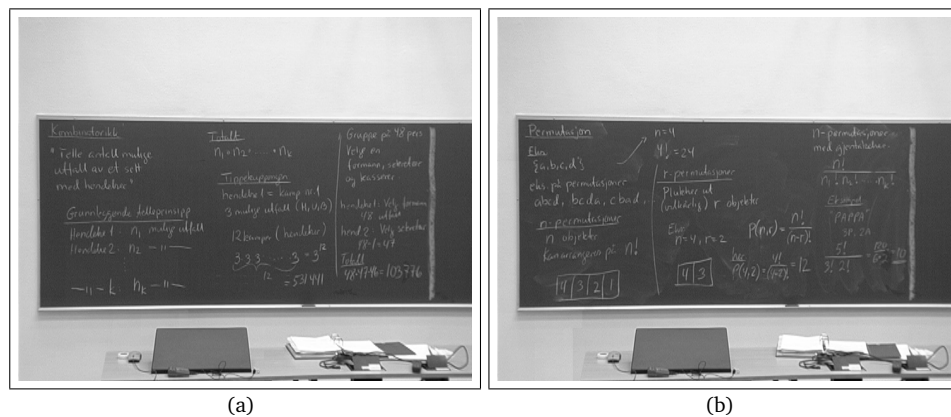 Kombinatorikk
"Telle antall mulige
utfall av et sett
med hendelser"
Grunnleggende telleprinsipp
Hendelse 1: n₁ mulige utfall
Hendelse 2: n₂ —〃—
—〃— k: nₖ —〃—
Totalt
n₁ · n₂ · ... · nₖ
Tippekupongen
hendelse 1 = kamp nr. 1
3 mulige utfall (H, U, B)
12 kamper (hendelser)
3·3·3 ... 3 = 3¹²
12
= 531441
Gruppe på 48 pers
Velge en
formann, sekretær
og kasserer
hendelse 1: Velg formann
48 utfall
hend 2: Velg sekretær
48-1=47
Totalt
48·47·46=103776
(a)
Permutasjon
Eks:
{a,b,c,d}
eks. på permutasjoner
abcd, bcda, cbad,
n-permutasjoner
n objekter
Kan arrangeres på n!
4 3 2 1
n=4
4! = 24
r-permutasjoner
Plukker ut
(vilkårlig) r objekter
Eks:
n=4, r=2
P(n,r) = n!/(n-r)!
4 3
her
P(4,2) = 4!/(4-2)! = 12
n-permutasjoner
med gjentakelser
n!
n₁! n₂! ... nₖ!
Eksempel
"PAPPA"
3P, 2A
5!/3! 2! = 120/6·2 = 10
(b)